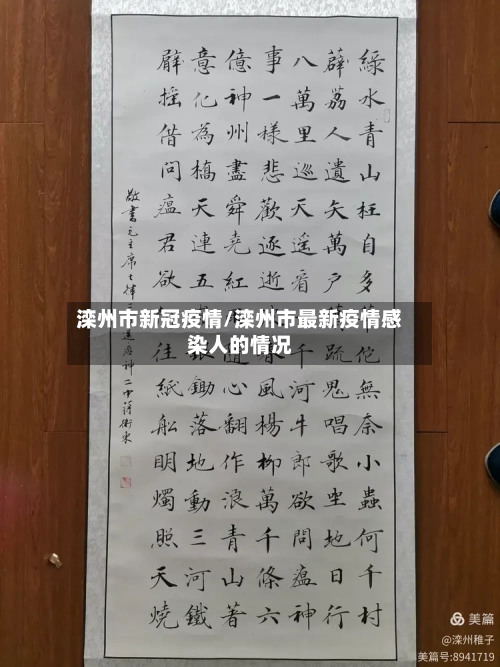 綠水青山枉自多佗無奈小蟲何千村
薜荔人遺矢萬戶疏鬼唱歌坐地日行
八萬里巡天遙看千河牛郎欲問瘟神
事一樣悲歡逐逝春風楊柳萬千條六
億神州盡舜堯紅隨心翻作浪青山著
意化為橋天連五鋤落地動三河鐵
臂搖借問瘟君欲往紙船明燭照天燒
敬書毛主席七律二送瘟神二中蔣衛東
滦州市新冠疫情/滦州市最新疫情感
染人的情况
美篇
@滦州稚子
美篇号:8941719